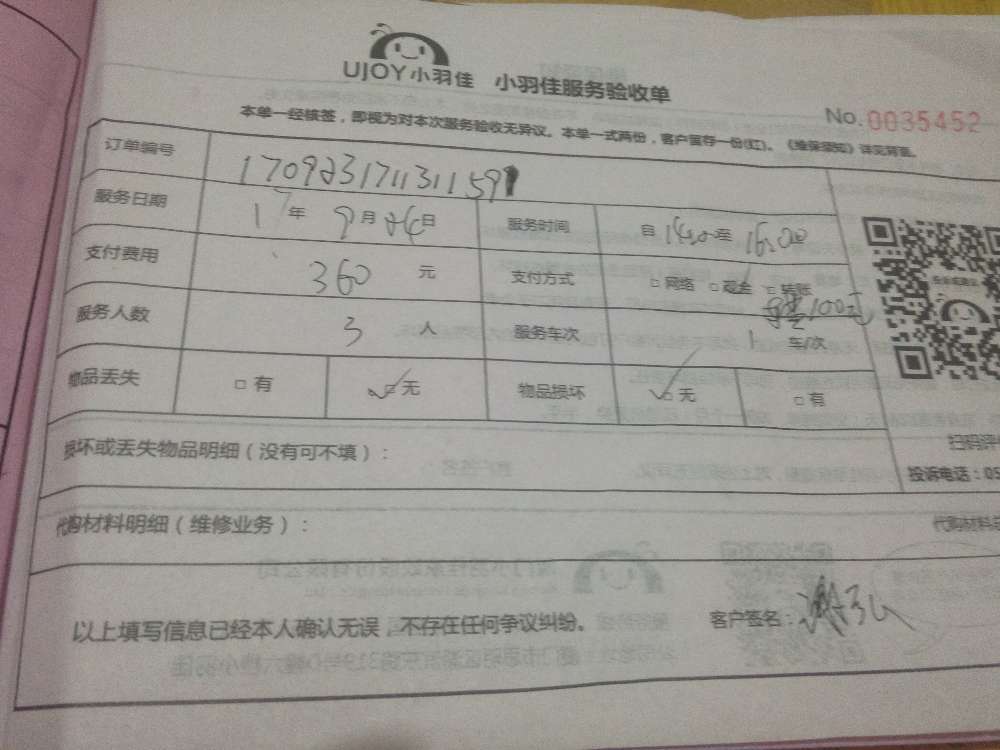 UJOY小羽佳 小羽佳服务验收单
No.0035452
本单一经核签，即视为对本次服务验收无异议。本单一式两份，客户留存一份(红)。《维保须知》详见背面。
订单编号 1709231711311591
服务日期 17年 9月 24日 服务时间 自 14:00 至 16:00
支付费用 360 元 支付方式 □网络 □现金 □转账
100元
服务人数 3 人 服务车次 1 车/次
物品丢失 □有 ☑无 物品损坏 ☑无 □有
损坏或丢失物品明细（没有可不填）：
扫码评
投诉电话：05
代购材料明细（维修业务）：
代购材料总
以上填写信息已经本人确认无误，不存在任何争议纠纷。 客户签名：